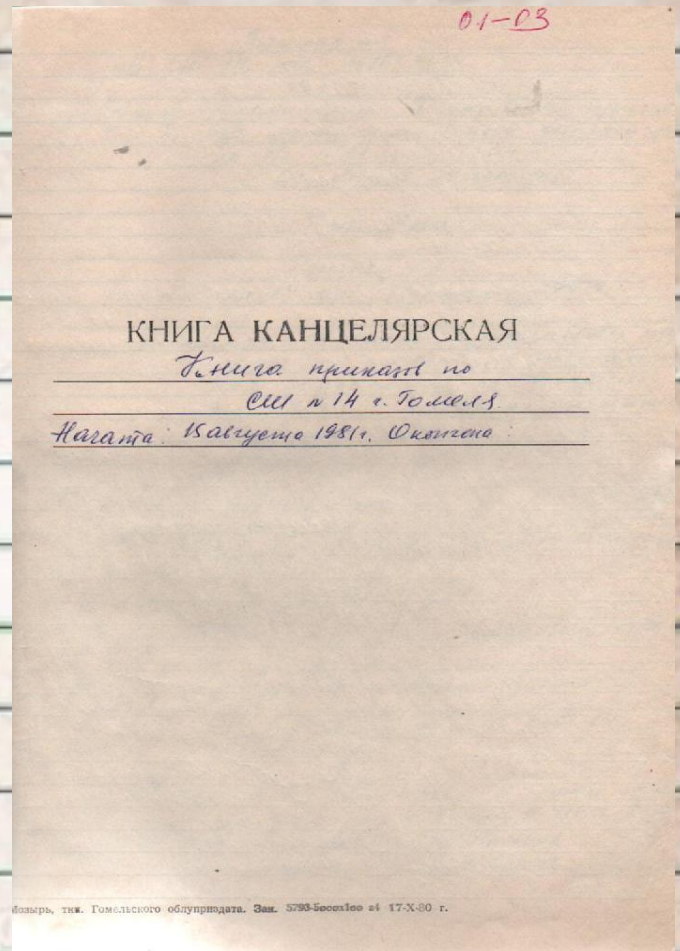 01-03
КНИГА КАНЦЕЛЯРСКАЯ
Книга приказов по
СШ № 14 г. Гомеля.
Начата: 15 августа 1981г. Окончена:
Мозырь, тип. Гомельского облуприздата. Зак. 17-X-80 г.